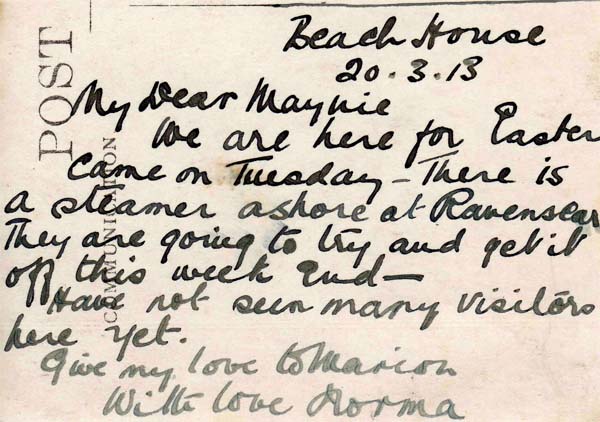 Beach House
20.3.13
My Dear Maynie
We are here for Easter
came on Tuesday - There is
a steamer ashore at Ravenscar
They are going to try and get it
off this week end -
Have not seen many visitors
here yet.
Give my love to Marion
With love Norma
POST
COMMUNICATION